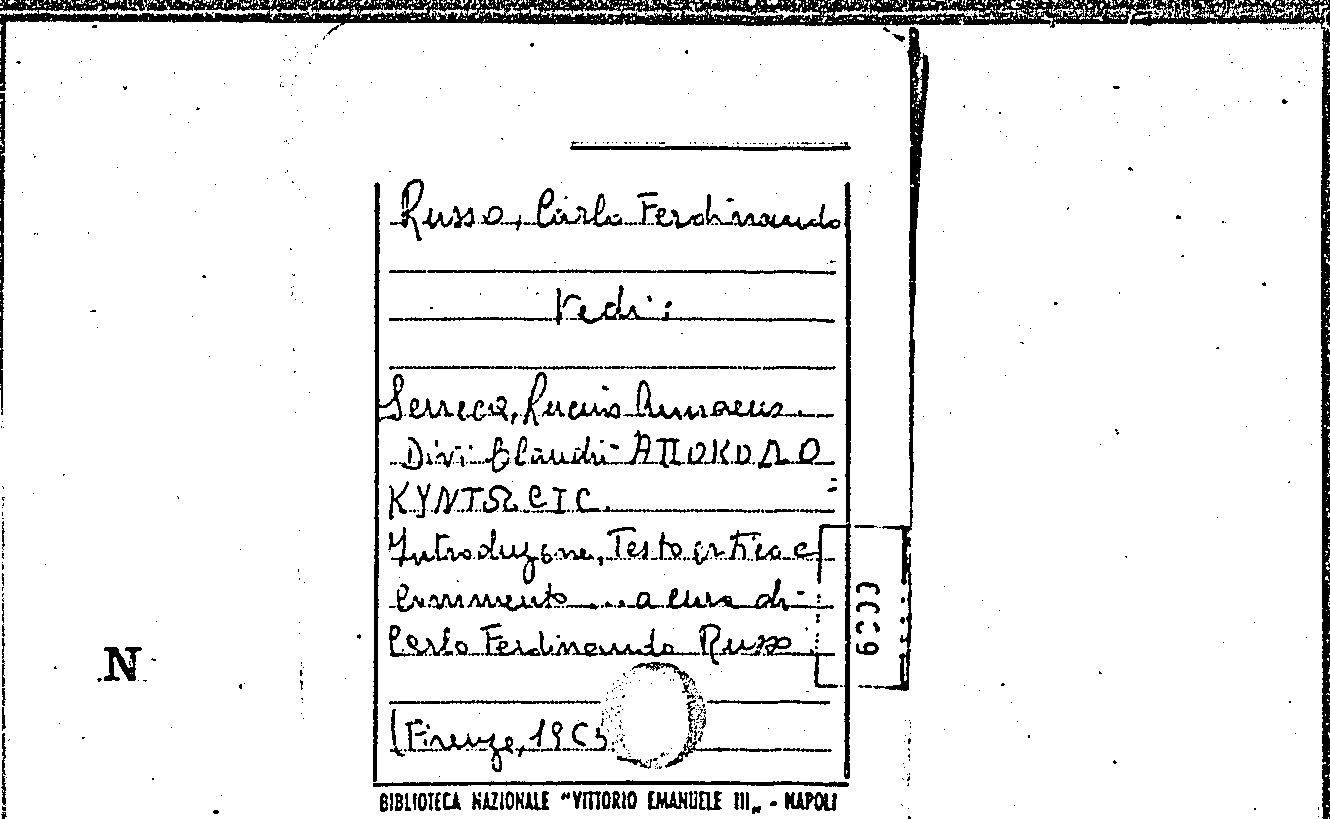 Russo, Carlo Ferdinando
Vedi:
Seneca, Lucius Annaeus.
Divi Claudii ΑΠΟΚΟΛΟ
ΚΥΝΤΩϹΙϹ.
Introduzione, Testo critico e
commento ... a cura di
Carlo Ferdinando Russo
(Firenze,
N
BIBLIOTECA NAZIONALE "VITTORIO EMANUELE III„ - NAPOLI